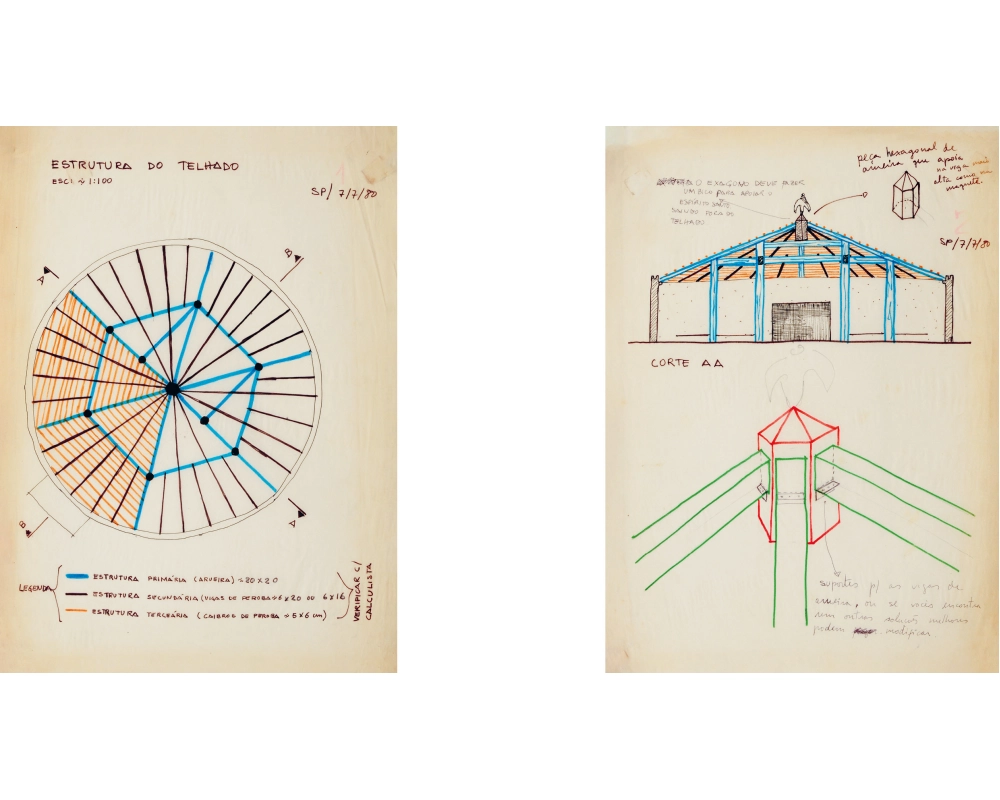 ESTRUTURA DO TELHADO
ESC: 1:100
SP/7/7/80
A
B
B
A
LEGENDA
ESTRUTURA PRIMÁRIA (AROEIRA) 20X20
ESTRUTURA SECUNDÁRIA (VIGAS DE PEROBA 6X20 OU 6X16
ESTRUTURA TERCEÁRIA (CAIBROS DE PEROBA 5X6 cm)
VERIFICAR C/
CALCULISTA
peça hexagonal de
aroeira que apoia
na viga mais
alta como na
maquete.
O EXÁGONO DEVE FAZER
UM BICO PARA APOIAR O
ESPÍRITO SANTO
FORA DO
TELHADO
SP/7/7/80
CORTE AA
suportes p/ as vigas de
aroeira, ou se vocês encontra
rem outras soluções melhores
podem modificar